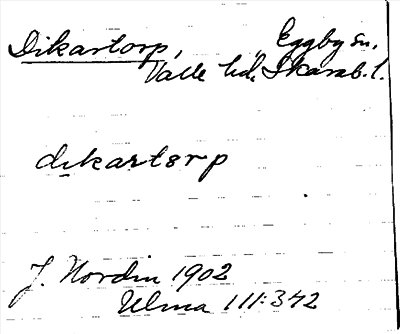 Dikartorp, Eggby sn,
Valle hd, Skarab. l.
dikartorp
J. Nordin 1902
Ulma 111:342